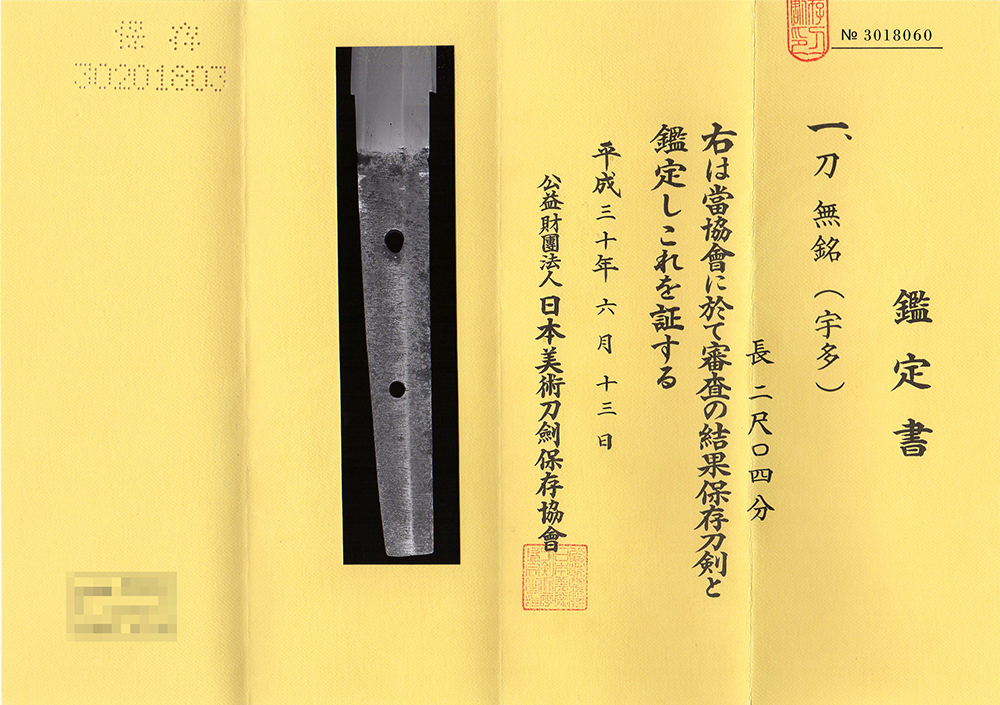 № 3018060
鑑定書
一、刀 無銘(宇多)
長 二尺〇四分
右は當協會に於て審査の結果保存刀剣と
鑑定しこれを証する
平成三十年 六月 十三日
公益財團法人 日本美術刀劍保存協會
保存
30201803